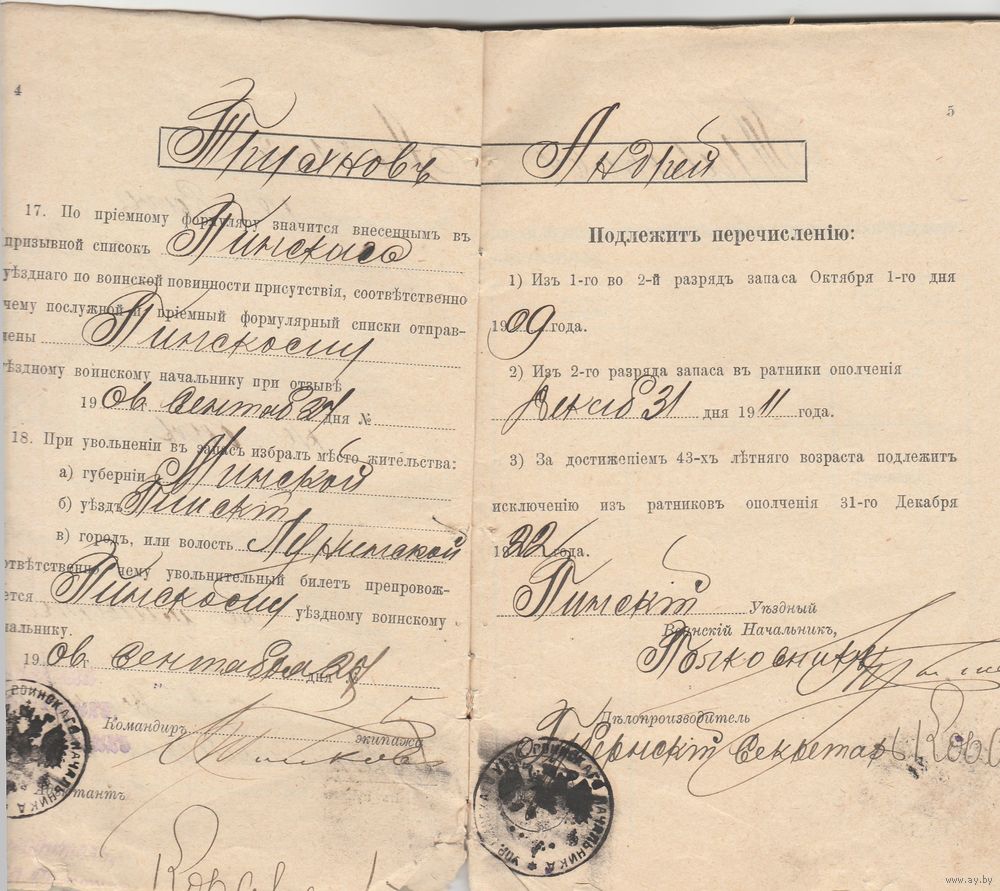 4
Трухновъ
17. По пріемному формуляру значится внесеннымъ въ
призывной списокъ Пинскаго
уѣзднаго по воинской повинности присутствія, соотвѣтственно
чему послужной и пріемный формулярный списки отправ-
лены Пинскому
уѣздному воинскому начальнику при отзывѣ
1906 г. Сентяб 27 дня №
18. При увольненіи въ запасъ избралъ мѣсто жительства:
а) губерніи Минской
б) уѣздъ Пинскій
в) городъ, или волость
отвѣтственно чему увольнительный билетъ препровож-
дается Пинскому уѣздному воинскому
начальнику.
1906 г. Сентября 27 дня
Командиръ экипажа
Адъютантъ
ВОИНСКАГО НАЧАЛЬНИКА
5
Андрей
Подлежитъ перечисленію:
1) Изъ 1-го во 2-й разрядъ запаса Октября 1-го дня
1909 года.
2) Изъ 2-го разряда запаса въ ратники ополченія
Декаб 31 дня 1911 года.
3) За достиженіемъ 43-хъ лѣтняго возраста подлежитъ
исключенію изъ ратниковъ ополченія 31-го Декабря
1922 года.
Пинскій Уѣздный
Воинскій Начальникъ,
Полковникъ
Дѣлопроизводитель
Губернскій Секретарь
УПР. ПИНСКАГО УѢЗД. ВОИНСКАГО НАЧАЛЬНИКА
www.ay.by